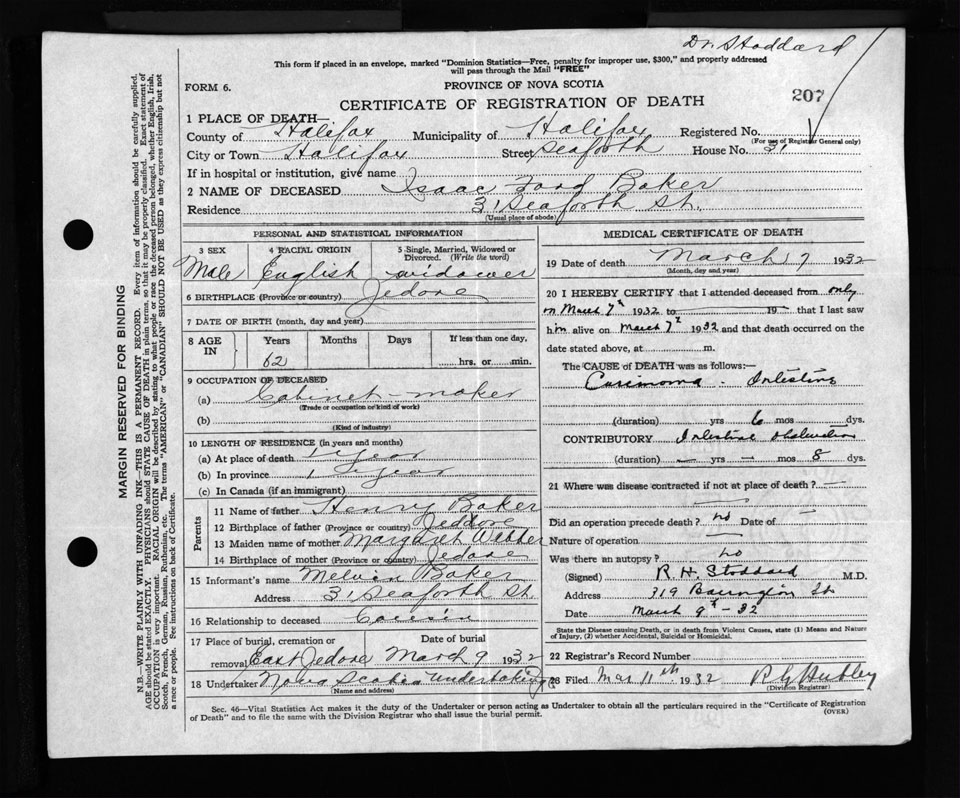 Dr. Stoddard
This form if placed in an envelope, marked "Dominion Statistics—Free, penalty for improper use, $300," and properly addressed
will pass through the Mail "FREE"
FORM 6.
PROVINCE OF NOVA SCOTIA
CERTIFICATE OF REGISTRATION OF DEATH
207
1 PLACE OF DEATH—
County of Halifax Municipality of Halifax Registered No.
(For use of Registrar General only)
City or Town Halifax Street Seaforth House No. 31
If in hospital or institution, give name
2 NAME OF DECEASED Isaac Ford Baker
Residence 31 Seaforth St.
(Usual place of abode)
PERSONAL AND STATISTICAL INFORMATION
3 SEX 4 RACIAL ORIGIN 5 Single, Married, Widowed or Divorced. (Write the word)
Male English widower
6 BIRTHPLACE (Province or country) Jedore
7 DATE OF BIRTH (month, day and year)
8 AGE IN Years Months Days If less than one day,
62 hrs. or min.
9 OCCUPATION OF DECEASED
(a) Cabinet-maker
(Trade or occupation or kind of work)
(b)
(Kind of industry)
10 LENGTH OF RESIDENCE (in years and months)
(a) At place of death 1 year
(b) In province 1 year
(c) In Canada (if an immigrant)
Parents
11 Name of father Henry Baker
12 Birthplace of father (Province or country) Jeddore
13 Maiden name of mother Margaret Webber
14 Birthplace of mother (Province or country) Jedore
15 Informant's name Melvin Baker
Address 31 Seaforth St.
16 Relationship to deceased Cousin
17 Place of burial, cremation or removal Date of burial
East Jedore March 9 1932
18 Undertaker Nova Scotia Undertaking
(Name and address)
MEDICAL CERTIFICATE OF DEATH
19 Date of death March 7 1932
(Month, day and year)
20 I HEREBY CERTIFY that I attended deceased from only
on March 7th 1932 to 19 — that I last saw
him alive on March 7th 1932 and that death occurred on the
date stated above, at m.
The CAUSE of DEATH was as follows:—
Carcinoma . Intestine
(duration) yrs 6 mos dys.
CONTRIBUTORY Intestinal obstruction
(duration) — yrs — mos 8 dys.
21 Where was disease contracted if not at place of death? —
Did an operation precede death? no Date of —
Nature of operation —
Was there an autopsy? no
(Signed) R. H. Stoddard M.D.
Address 319 Barrington St
Date March 9th - 32
State the Disease causing Death, or in death from Violent Causes, state (1) Means and
Nature of Injury, (2) whether Accidental, Suicidal or Homicidal.
22 Registrar's Record Number
23 Filed Mar 11th 1932 R G Hubley
(Division Registrar)
Sec. 46—Vital Statistics Act makes it the duty of the Undertaker or person acting as Undertaker to obtain all the particulars required in the "Certificate of Registration
of Death" and to file the same with the Division Registrar who shall issue the burial permit.
(OVER)
MARGIN RESERVED FOR BINDING
N.B.—WRITE PLAINLY WITH UNFADING INK—THIS IS A PERMANENT RECORD. Every item of information should be carefully supplied.
AGE should be stated EXACTLY. PHYSICIANS should STATE CAUSE OF DEATH in plain terms, so that it may be properly classified. Exact statement of
OCCUPATION is very important. RACIAL ORIGIN will be described by stating to what people or race the deceased person belonged, whether English, Irish,
Scotch, French, German, Russian, Ruthenian, etc. The terms "AMERICAN" or "CANADIAN" SHOULD NOT BE USED as they express citizenship but not
a race or people. See instructions on back of Certificate.